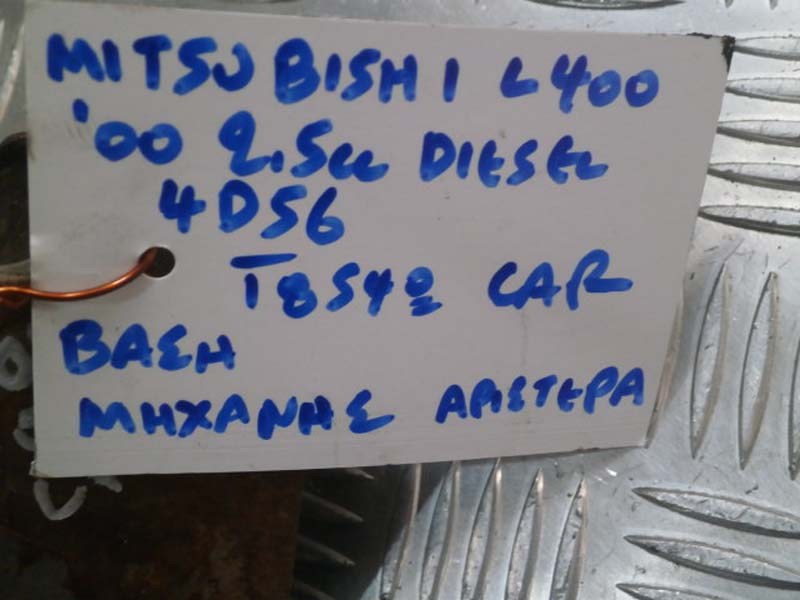 MITSUBISHI L400
'00 2.5cc DIESEL
4D56
18540 CAR
ΒΑΣΗ
ΜΗΧΑΝΗΣ ΑΡΙΣΤΕΡΑ